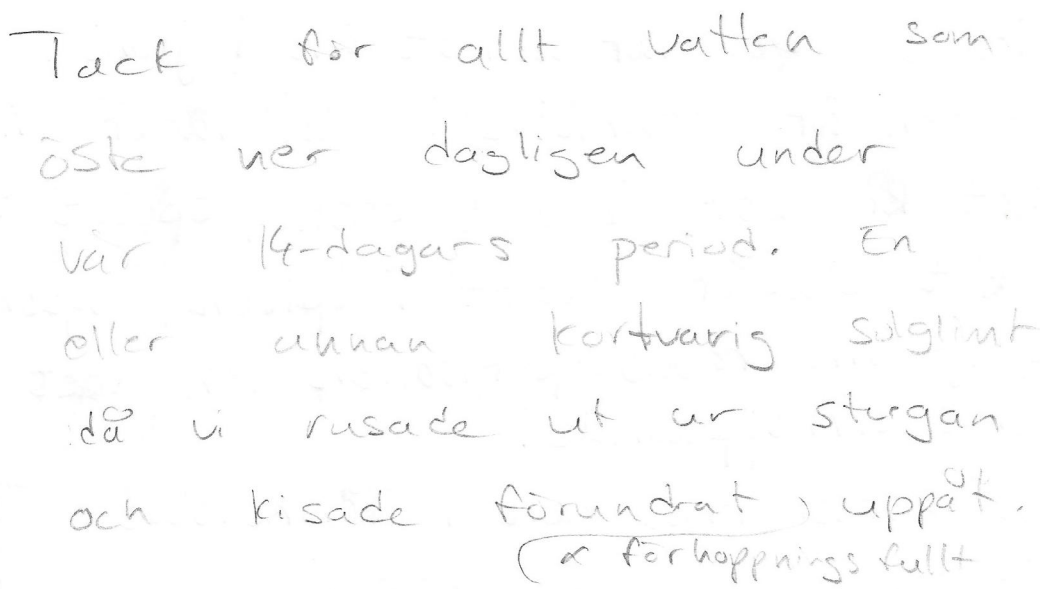 Tack för allt vatten som
öste ner dagligen under
vår 14-dagars period. En
eller annan kortvarig solglimt
då vi rusade ut ur stugan
och kisade förundrat, uppåt.
(& förhoppningsfullt